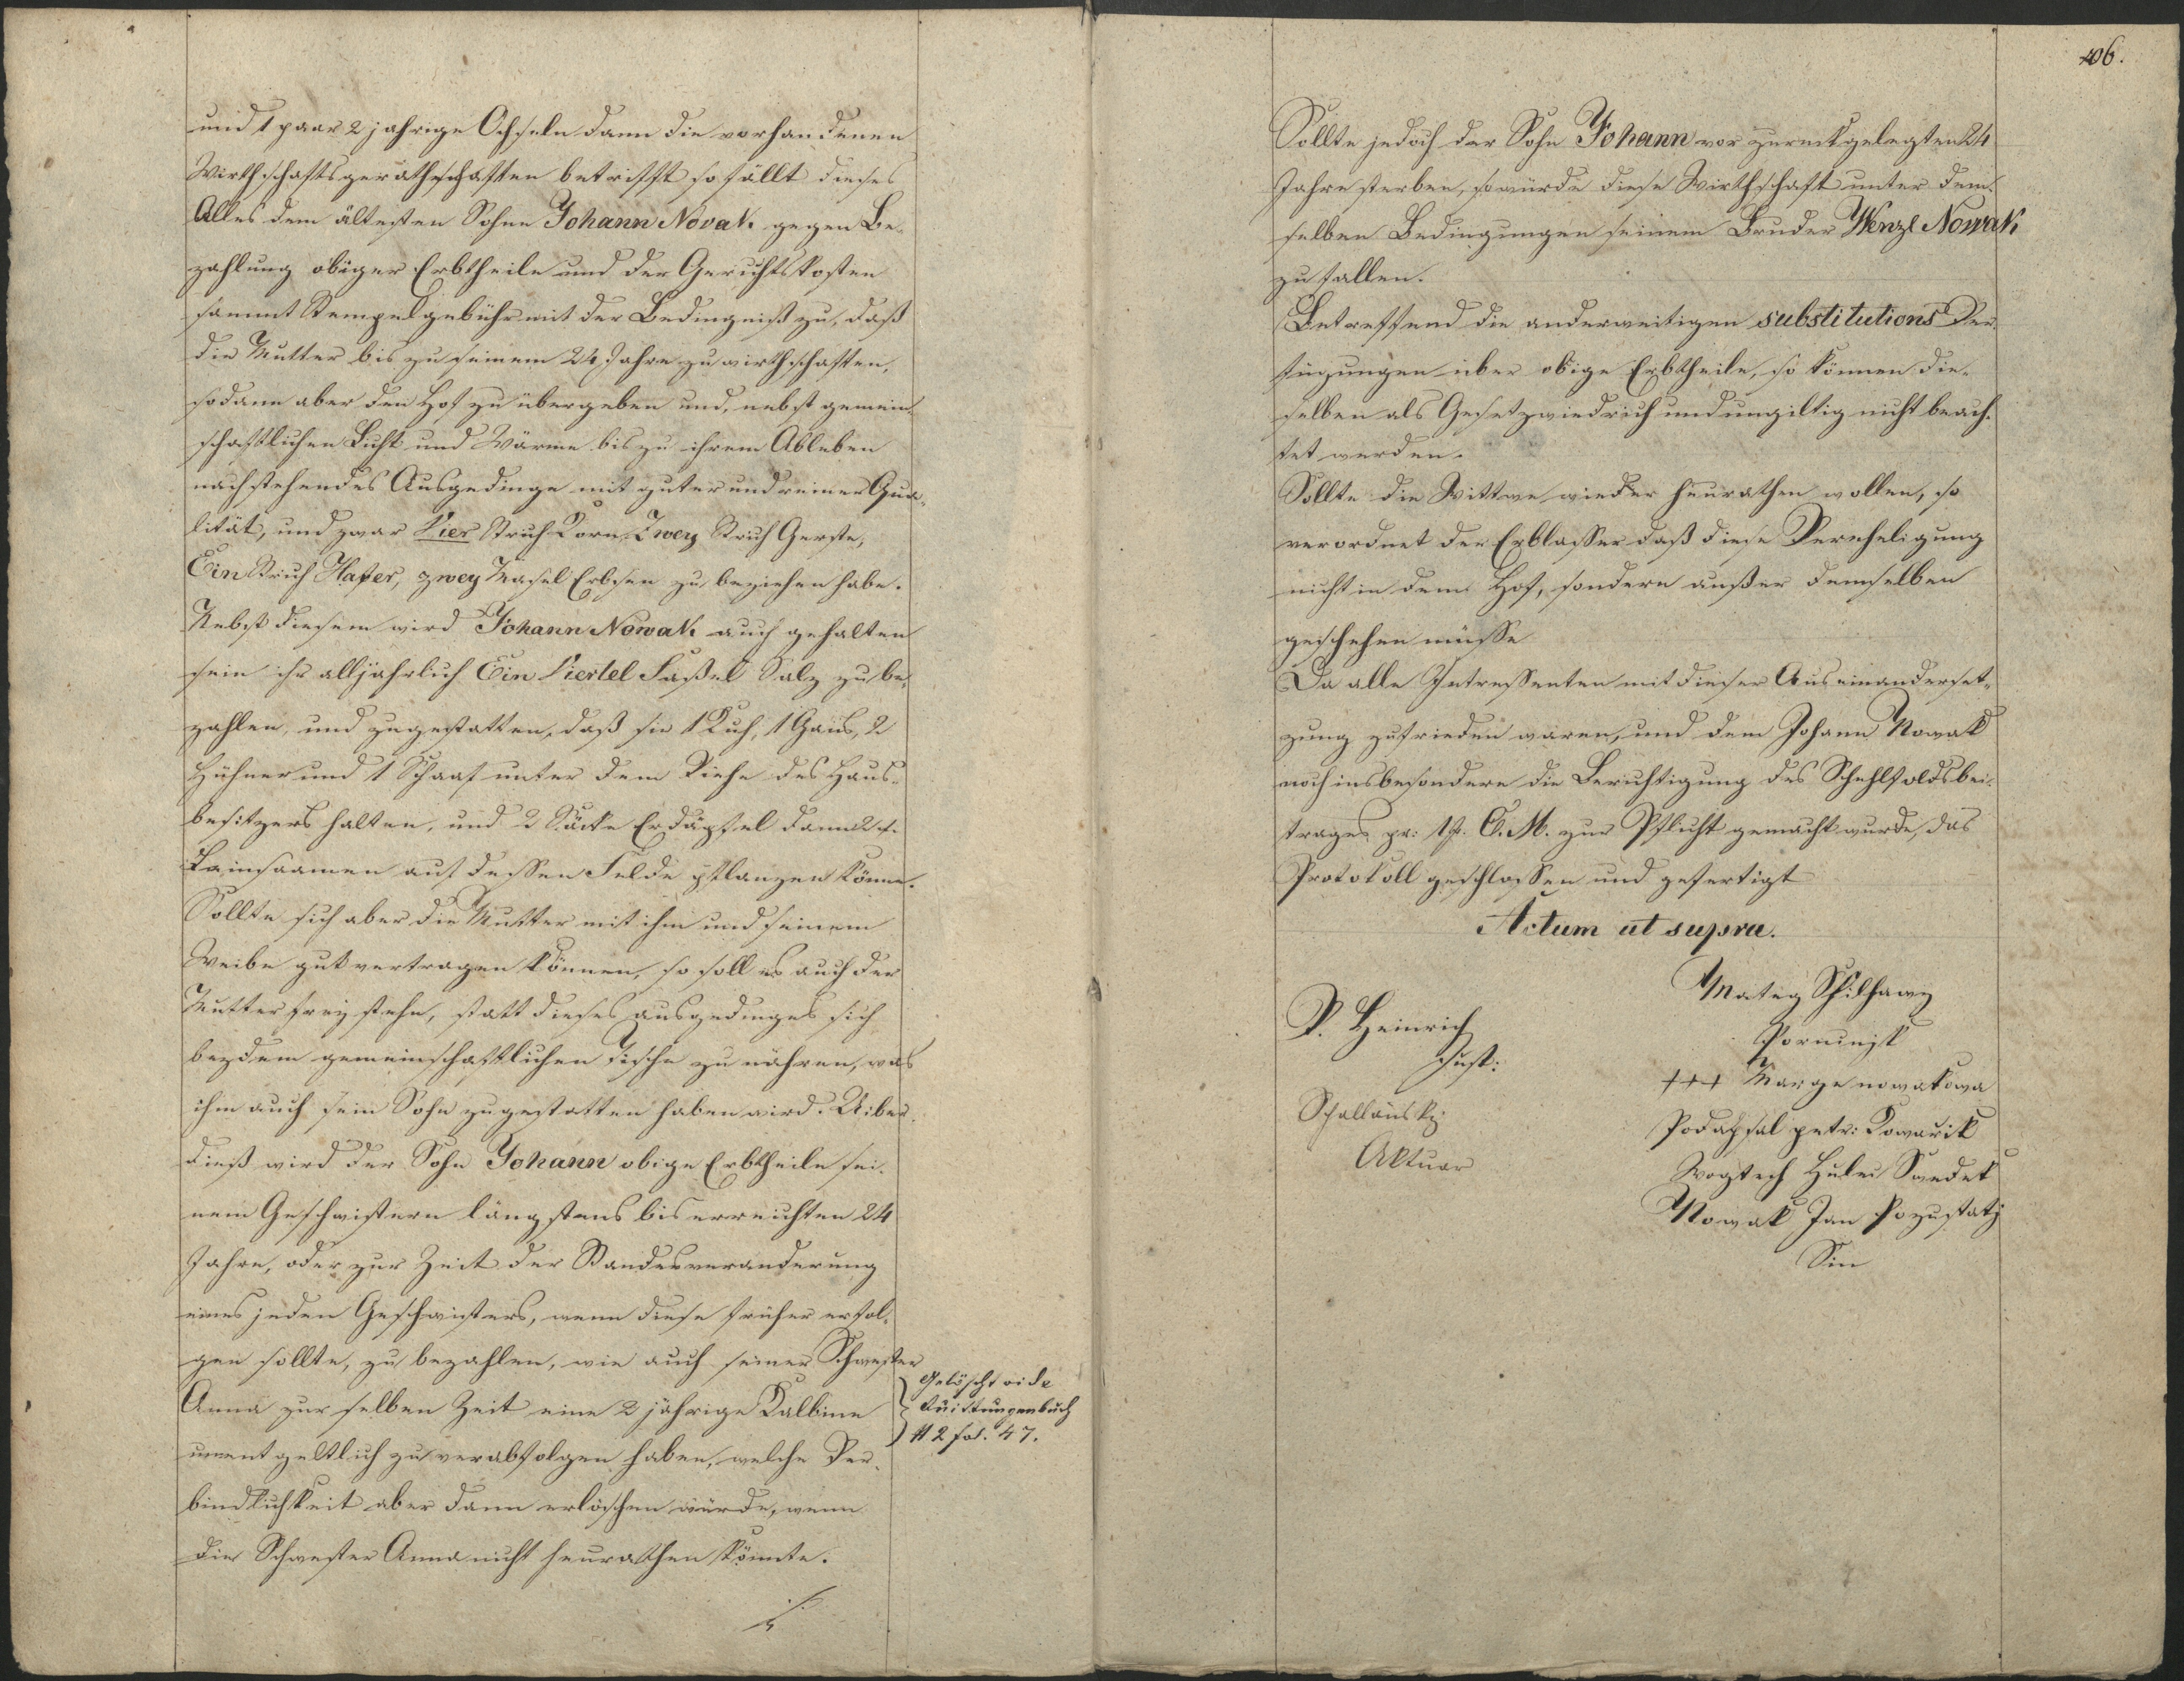 und 1 paar 2 jahrige Ochseln dann die vorhandenen
Wirthschaftsgeräthschaften betrifft so fällt dieses
Alles dem ältesten Sohne Johann Novak gegen Be-
zahlung obiger Erbtheile und der Gerichtskosten
sammt Stempelgebühr mit der Bedingniß zu, daß
die Mutter bis zu seinem 24 Jahre zu wirthschaften,
sodann aber den Hof zu übergeben und, nebst gemein-
schaftlichen Licht und Wärme bis zu ihrem Ableben
nachstehendes Ausgedinge mit guter und reiner Qua-
lität, und zwar Vier Strich Korn, Zwey Strich Gerste,
Ein Strich Hafer, zwey Mäsel Erbsen zu beziehen habe.
Nebst diesem wird Johann Nowak auch gehalten
sein ihr alljahrlich Ein Viertel Faßel Salz zu be-
zahlen, und zugestatten, daß sie 1 Kuh, 1 Gans, 2
Hühner und 1 Schaaf unter dem Viehe des Haus-
besitzers halten, und 2 Säcke Erdäpfel dann 2
Leinsaamen auf dessen Felde pflanzen könne.
Sollte sich aber die Mutter mit ihm und seinem
Weibe gut vertragen können, so soll es auch der
Mutter frey stehn, statt dieses ausgedinges sich
bey dem gemeinschaftlichen Tische zu nähren, was
ihm auch sein Sohn zugestatten haben wird. Uiber-
dieß wird der Sohn Johann obige Erbtheile sei-
nem Geschwistern längstens bis erreichten 24
Jahre, oder zur Zeit der Standesveranderung
eines jeden Geschwisters, wenn diese früher erfol-
gen sollte, zu bezahlen, wie auch seiner Schwester
Anna zur selben Zeit eine 2 jährige Kalbine
unentgeltlich zu verabfolgen haben, welche Ver-
bindlichkeit aber dann erlöschen würde, wenn
die Schwester Anna nicht heurathen könnte.
./.
Gelöscht vide
Quittungenbuch
N 2 fol. 47.
406.
Sollte jedoch der Sohn Johann vor zurückgelegten 24
Jahre sterben, so würde diese Wirthschaft unter dem-
selben Bedingungen seinem Bruder Wenzl Nowak
zu fallen.
Betreffend die anderweitigen substitutions Ver-
fügungen über obige Erbtheile, so können die-
selben als Gesetzwiedrich und ungiltig nicht beach-
tet werden.
Sollte die Wittwe wieder heurathen wollen, so
verordnet der Erblasser daß diese Vereheligung
nicht in dem Hof, sondern außer demselben
geschehen müsse
Da alle Intressenten mit dieser Auseinanderset-
zung zufrieden waren, und dem Johann Nowak
noch insbesondere die Berichtigung des Schulfondsbei-
trages pr: 1 f. C. M. zur Pflicht gemacht wurde, das
Protokoll geschlossen und gefertigt
Actum ut supra.
P. Heinrich
Just:
Aktuar
Matej
Porunjk
+++ Marge nowakowa
Podapsal petr: Kowarik
Wogtech Swedek
Nowak Jan Pozustaly
Sin